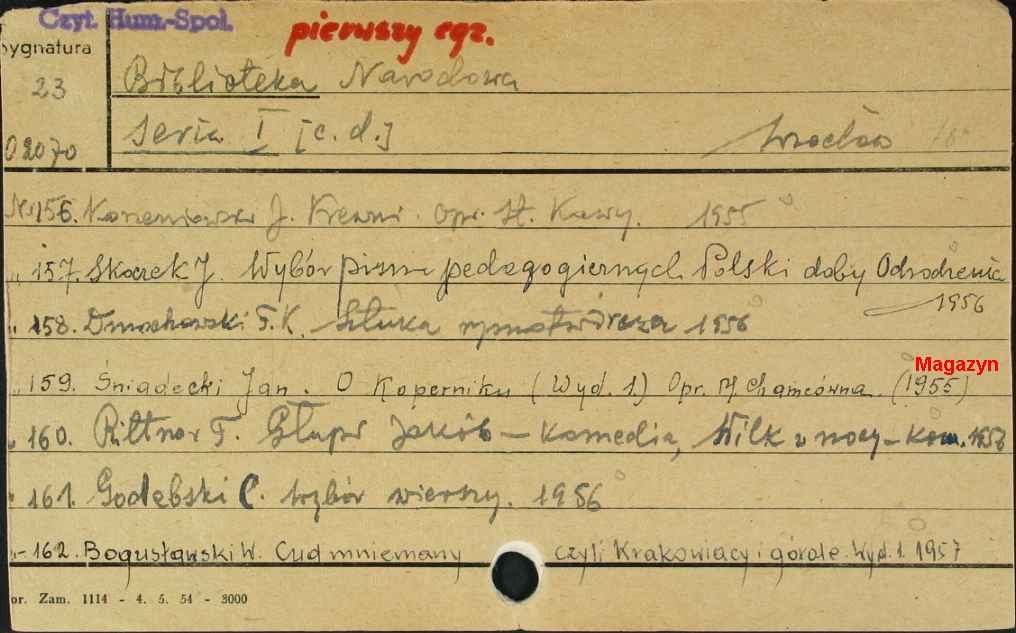 Czyt. Hum.-Społ.
pierwszy egz.
Sygnatura
23
02070
Biblioteka Narodowa
Seria I [c. d.]
Wrocław
Nr 156. Korzeniowski J. Krewni. Opr. St. Kawy. 1955
„ 157. Skoczek J. Wybór pism pedagogicznych Polski doby Odrodzenia
1956
„ 158. Dmochowski F. K. Sztuka rymotwórcza 1956
Magazyn
„ 159. Śniadecki Jan. O Koperniku (Wyd. 1.) Opr. M. Chamcówna. (1955)
„ 160. Rittner T. Głupi Jakób – komedia, Wilki w nocy – kom. 1956
„ 161. Godebski C. Wybór wierszy. 1956
„ – 162. Bogusławski W. Cud mniemany czyli Krakowiacy i górale. Wyd. 1. 1957
or. Zam. 1114 - 4. 5. 54 - 3000